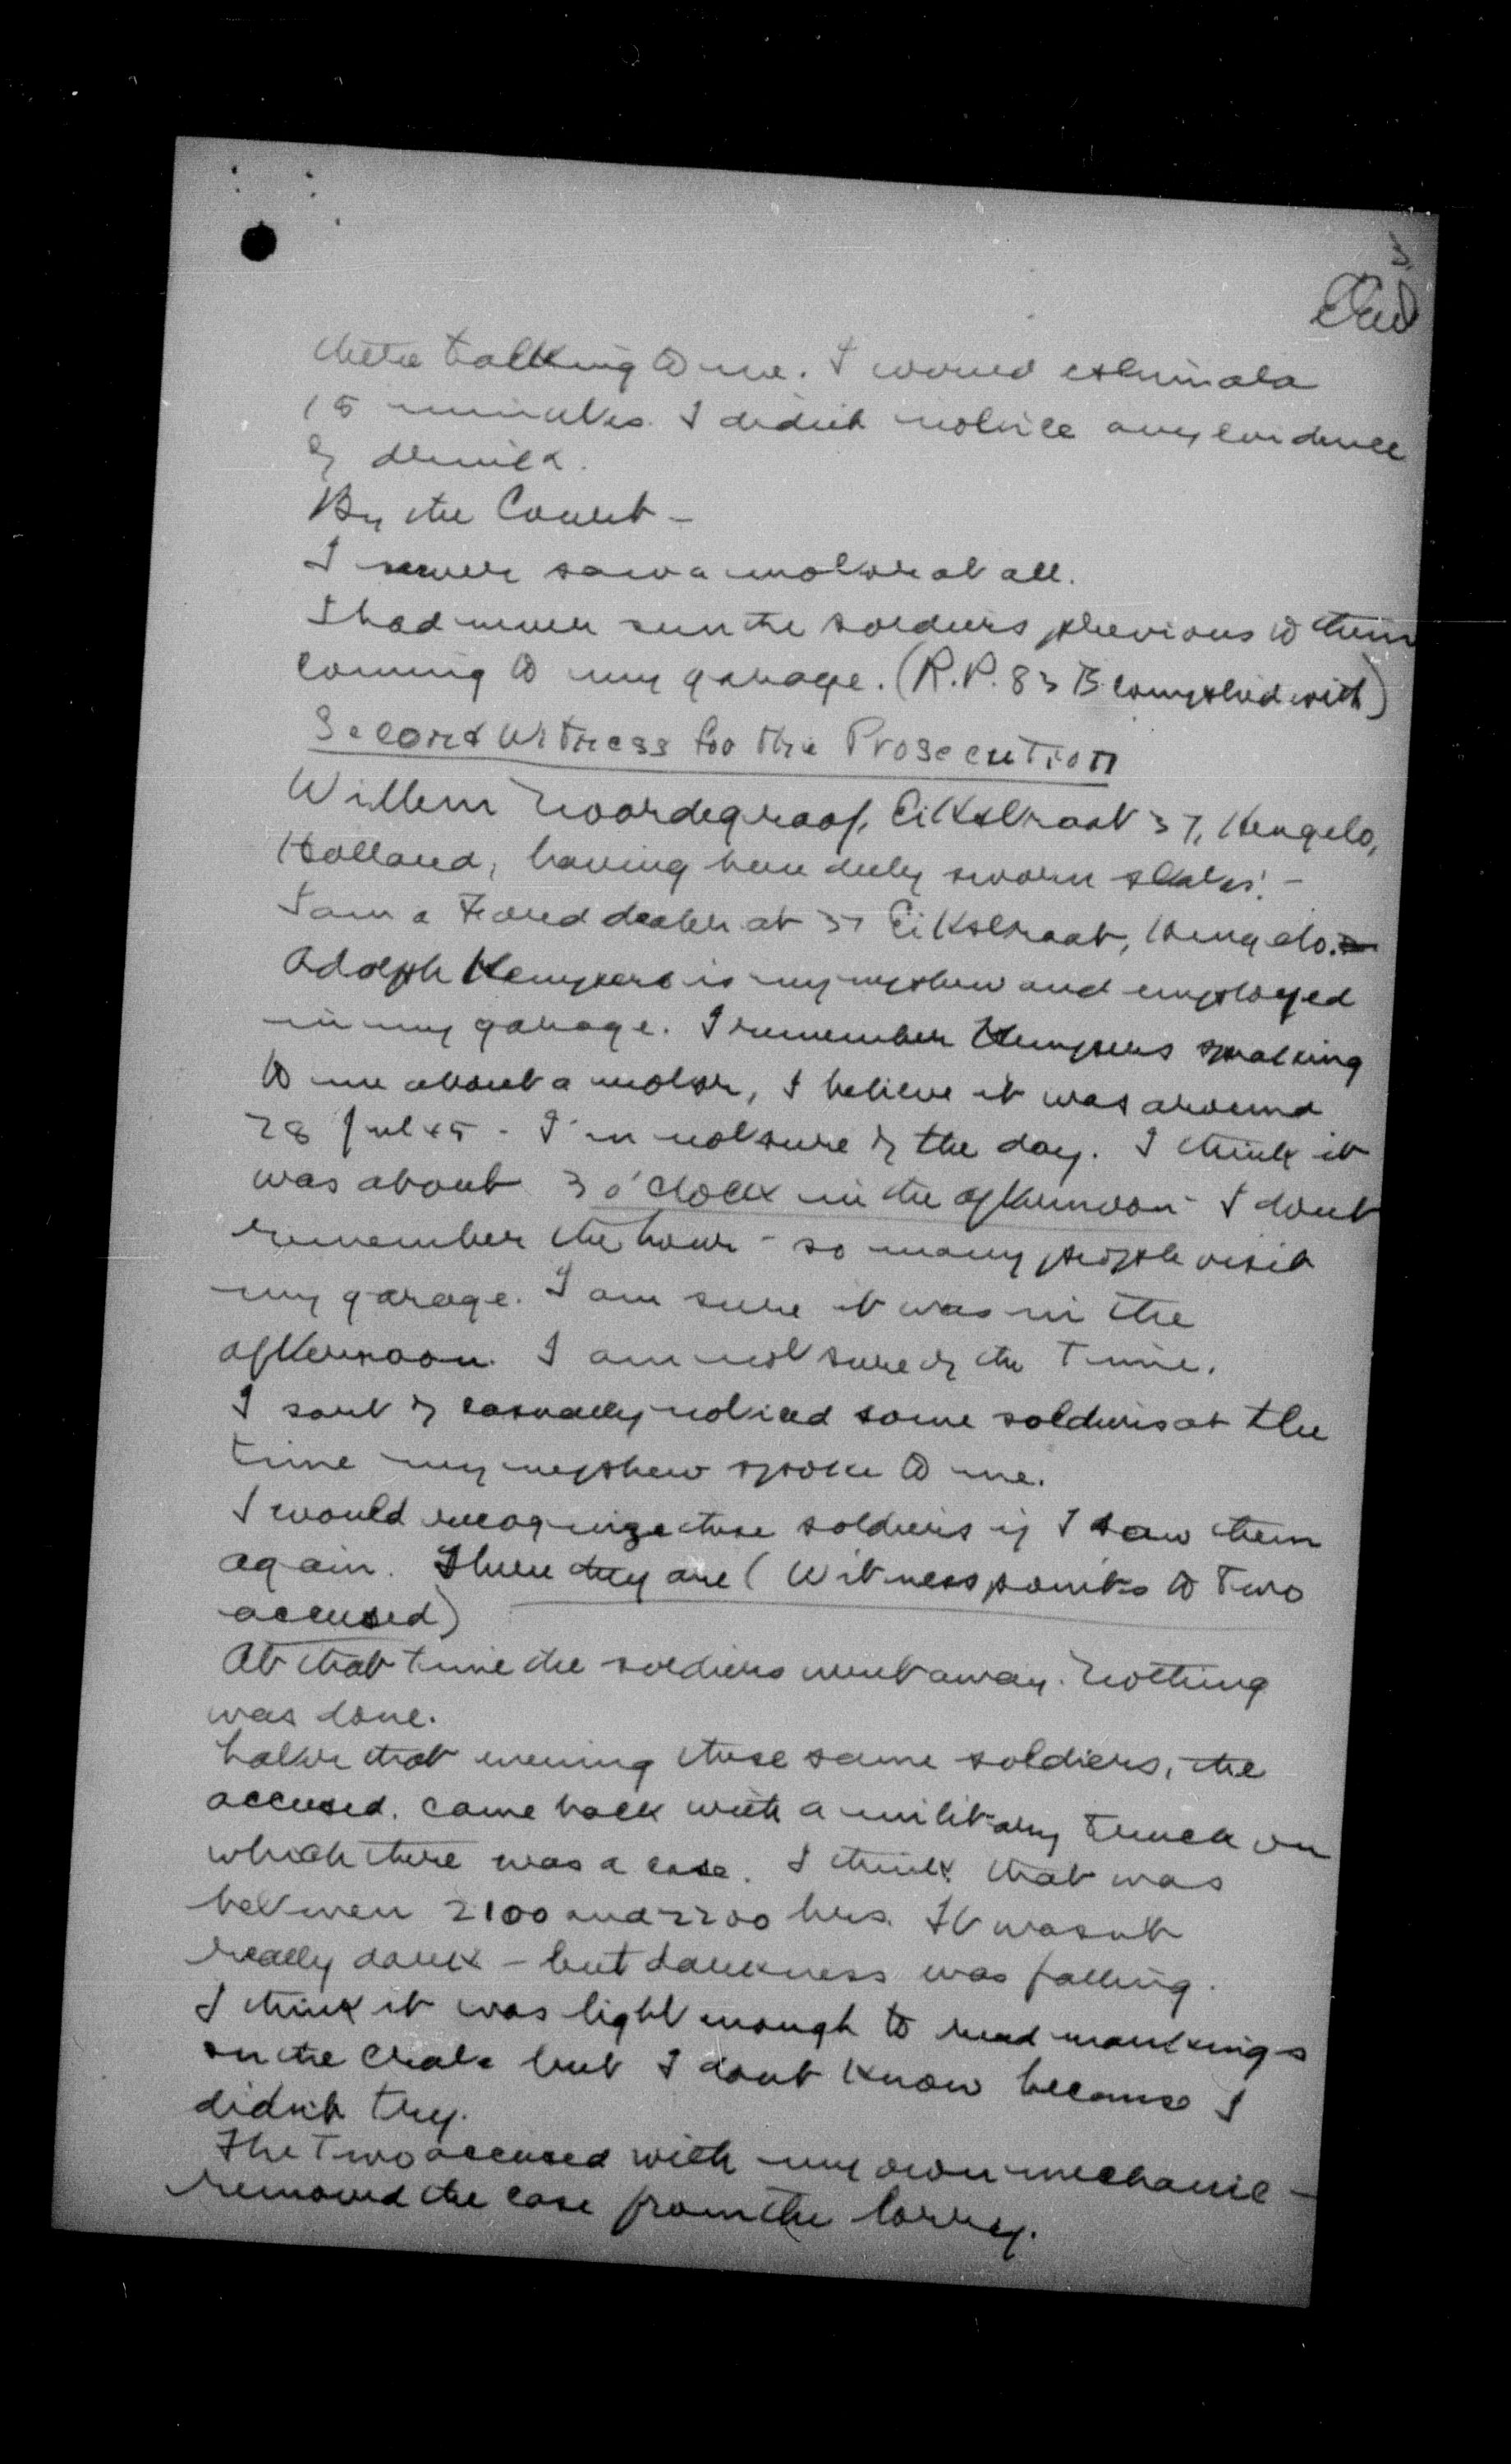 3.
there talking to me. I would estimate
15 minutes. I didnt notice any evidence
of drink.
By the Court –
I never saw a motor at all.
I had never seen the soldiers previous to them
coming to my garage. (R.P. 83 B complied with)
Second Witness for the Prosecution
Willem Noordegraaf, Eikstraat 37, Hengelo,
Holland, having been duly sworn states: –
I am a Ford dealer at 37 Eikstraat, Hengelo.
Adolph Kempers is my nephew and employed
in my garage. I remember Kempers speaking
to me about a motor, I believe it was around
28 Jul 45 – I'm not sure of the day. I think it
was about 3 o'clock in the afternoon – I dont
remember the hour – so many people visit
my garage. I am sure it was in the
afternoon. I am not sure of the time.
I sort of casually noticed some soldiers at the
time my nephew spoke to me.
I would recognize those soldiers if I saw them
again. There they are (Witness points to two
accused)
At that time the soldiers went away. Nothing
was done.
Later that evening these same soldiers, the
accused, came back with a military truck on
which there was a case. I think that was
between 2100 and 2200 hrs. It wasnt
really dark – but darkness was falling.
I think it was light enough to read markings
on the crate but I dont know because I
didn't try.
The two accused with my own mechanic –
removed the case from the lorry.